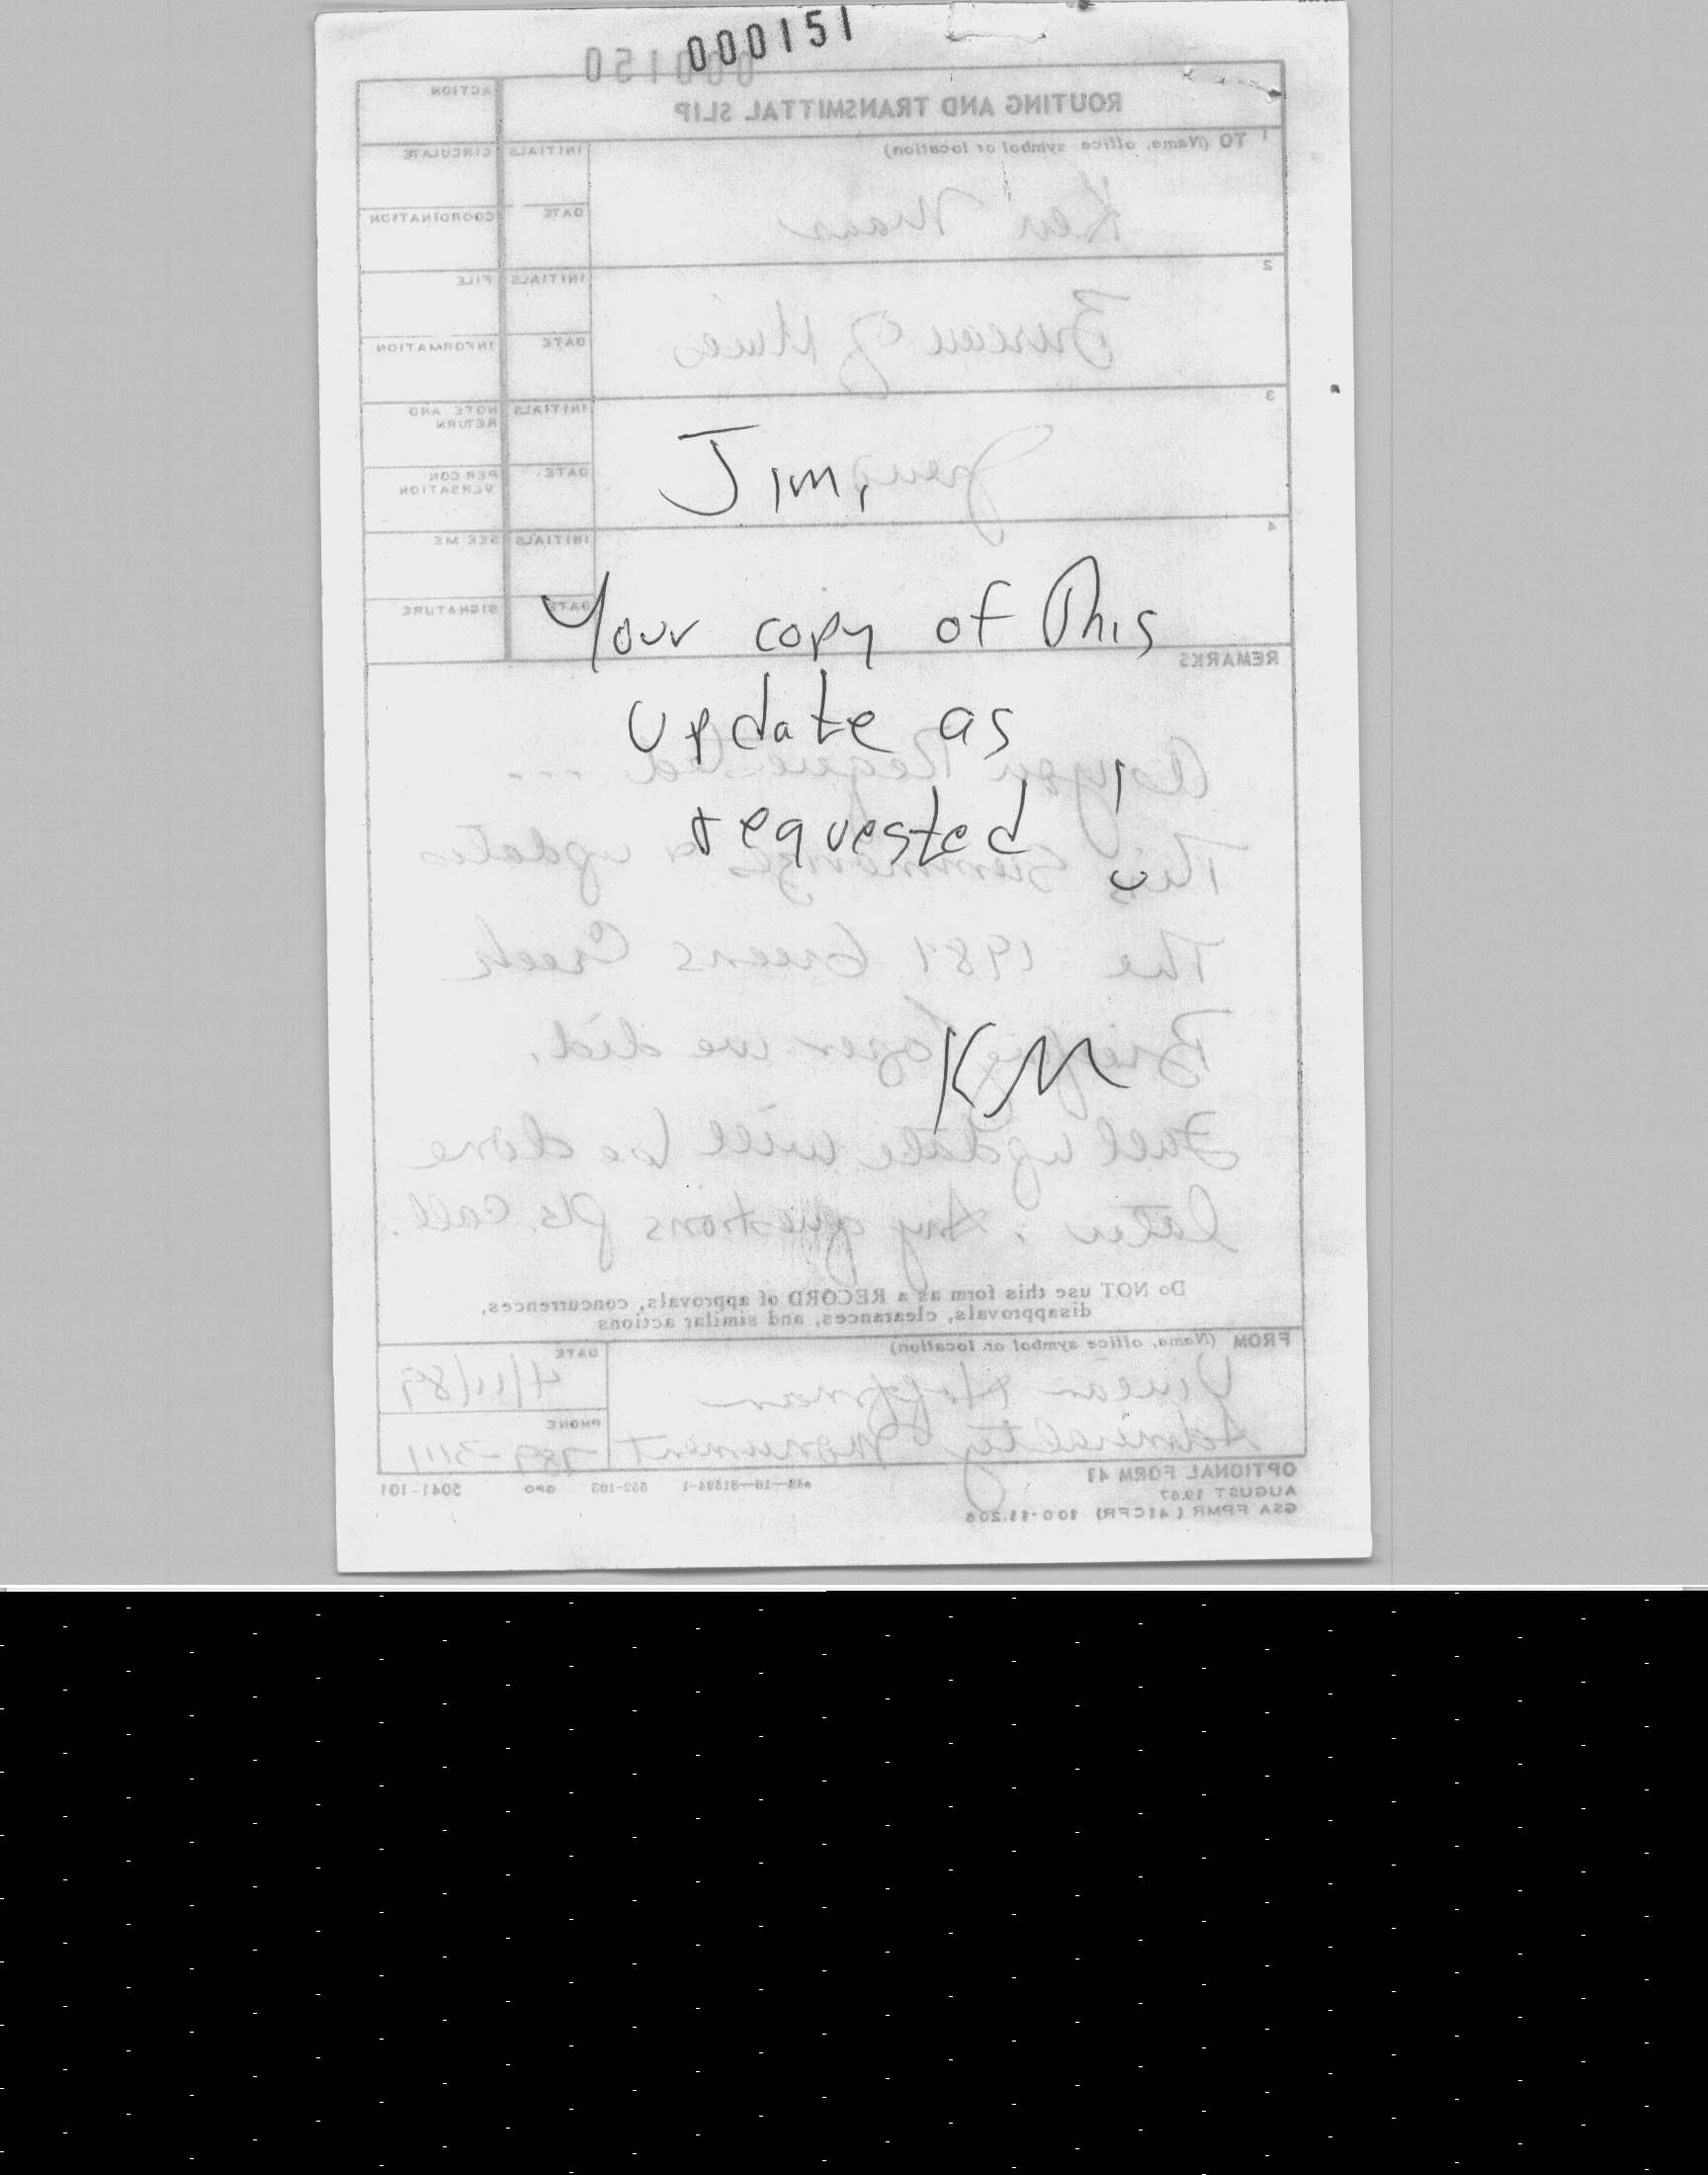 000151
000150
ROUTING AND TRANSMITTAL SLIP
ACTION
1 TO (Name, office symbol or location)
INITIALS
CIRCULATE
Ken Maas
DATE
COORDINATION
2
INITIALS
FILE
Bureau of Mines
DATE
INFORMATION
3
INITIALS
NOTE AND
RETURN
Juneau
DATE
PER CON
VERSATION
Jim,
4
INITIALS
SEE ME
DATE
SIGNATURE
Your copy of This
update as
requested !
KM
REMARKS
As you Requested ...
This summarizes & updates
The 1987 Greens Creek
Briefing Paper we did.
Full update will be done
later. Any questions pls. call.
Do NOT use this form as a RECORD of approvals, concurrences,
disapprovals, clearances, and similar actions
FROM (Name, office symbol or location)
DATE
4/11/89
Hoffman
Admiralty Monument
PHONE
789-3111
OPTIONAL FORM 41
AUGUST 1967
GSA FPMR (41CFR) 100-11.206
5041-101
GPO